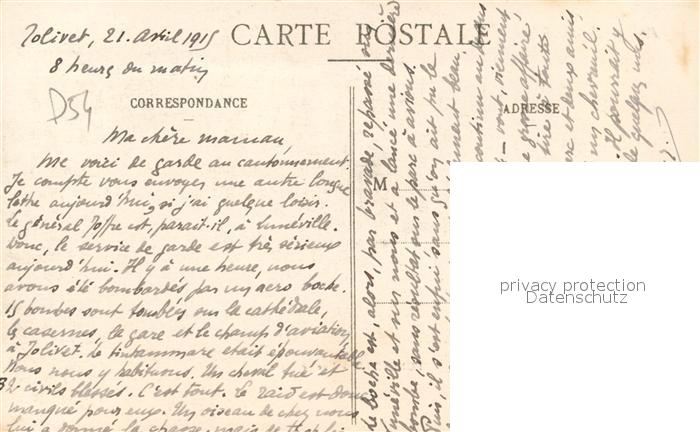 Jolivet, 21. Avril 1915
8 heures du matin
CARTE POSTALE
D54
CORRESPONDANCE
ADRESSE
M
Ma chère maman,
Me voici de garde au cantonnement.
Je compte vous envoyer une autre longue
lettre aujourd'hui, si j'ai quelque loisir.
Le général Joffre est, parait-il, à Lunéville.
Donc, le service de garde est très sérieux
aujourd'hui. Il y a une heure, nous
avons été bombardés par un aéro boche.
15 bombes sont tombées sur la cathédrale,
les casernes, la gare et le champ d'aviation,
à Jolivet. Le tintammare etait épouvantable
Nous nous y habituons. Un cheval tué et
civils blessés. C'est tout. Le raid est donc
manqué pour eux. Un oiseau de chez nous
lui a donné la chasse, mais
le boche est, alors, par bravade, repassé sur
Lunéville et sur nous et a lancé une dernière
bombe sans résultat sur le parc à avions.
Puis, il s'est enfui sans qu'on ait pu le
vont, viennent
affairé
et leurs amis
un chevreuil.
il pourrait y
quelques
privacy protection
Datenschutz